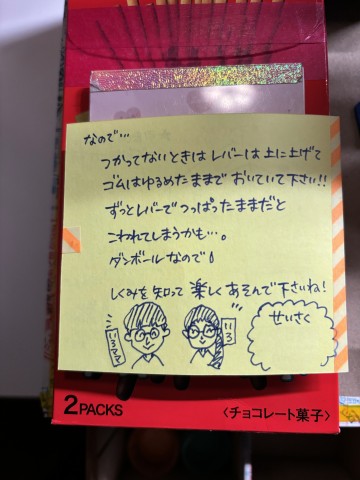 なので…
つかってないときは レバーは 上に上げて
ゴムはゆるめたままで おいていて下さい!!
ずっとレバーでつっぱったままだと
こわれてしまうかも…。
ダンボールなので!
しくみを知って 楽しく あそんで下さいね!
せいさく
いろママ
いろ
2 PACKS
〈チョコレート菓子〉